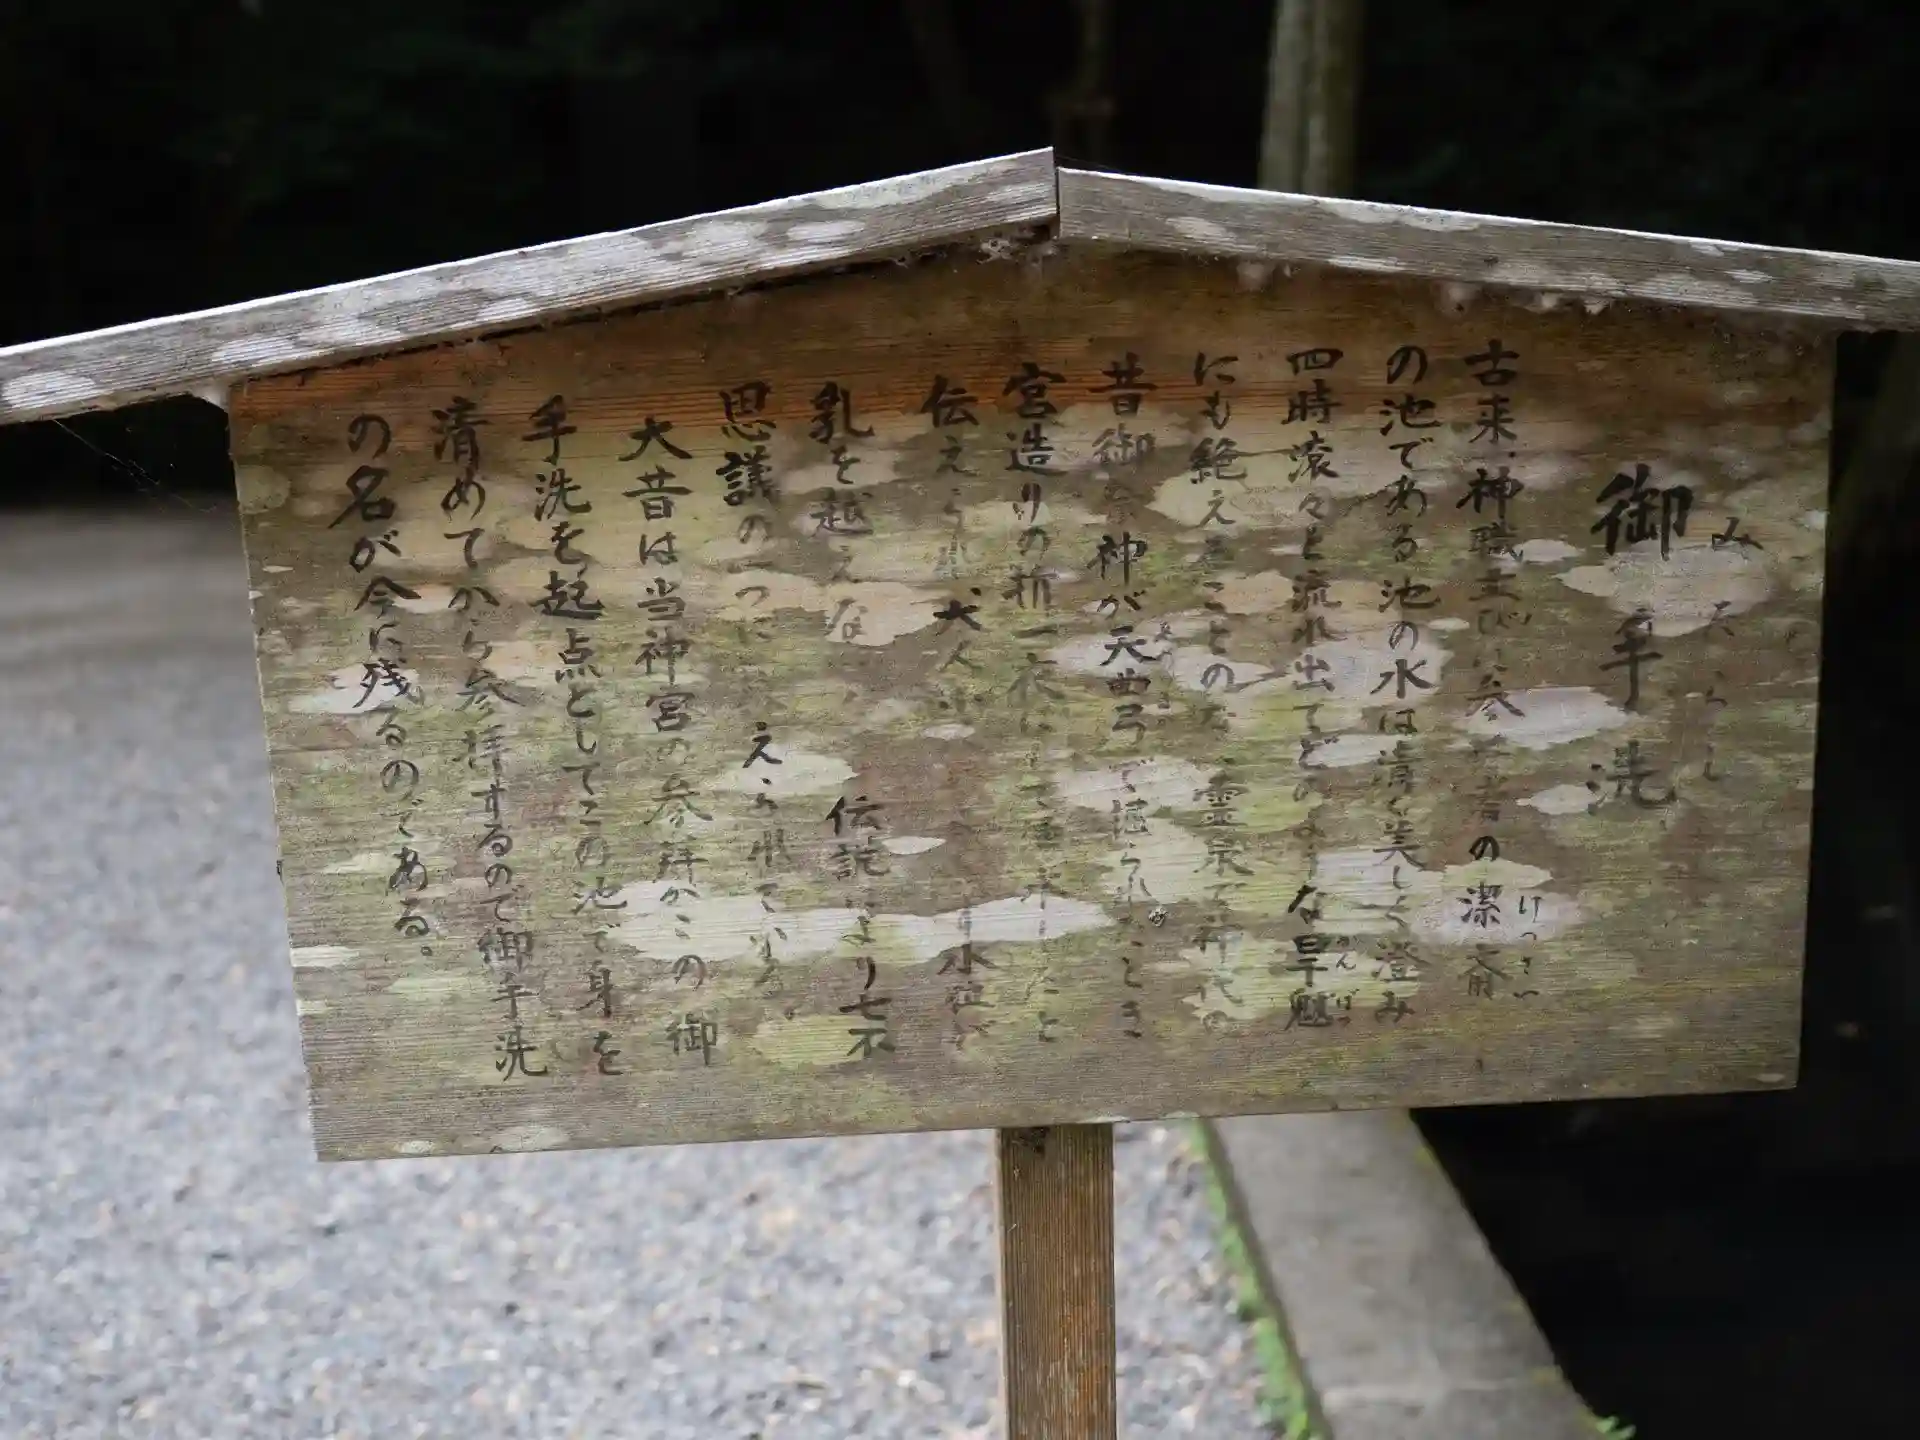 御手洗
みたらし
古来、神職並びに参拝者の潔斎
けっさい
の池である池の水は清く美しく澄み
四時滾々と流れ出てどのような旱魃
かんばつ
にも絶えることのない霊泉で神代の
昔御祭神が天曲弓で掘られたとき
宮造りの折一夜にして湧水したと
伝えられ 大人小 水位が
乳を越えない 伝説により七不
思議の一つに えられている。
大昔は当神宮の参拝がこの御
手洗を起点としてこの池で身を
清めてから参拝するので御手洗
の名が今に残るのである。